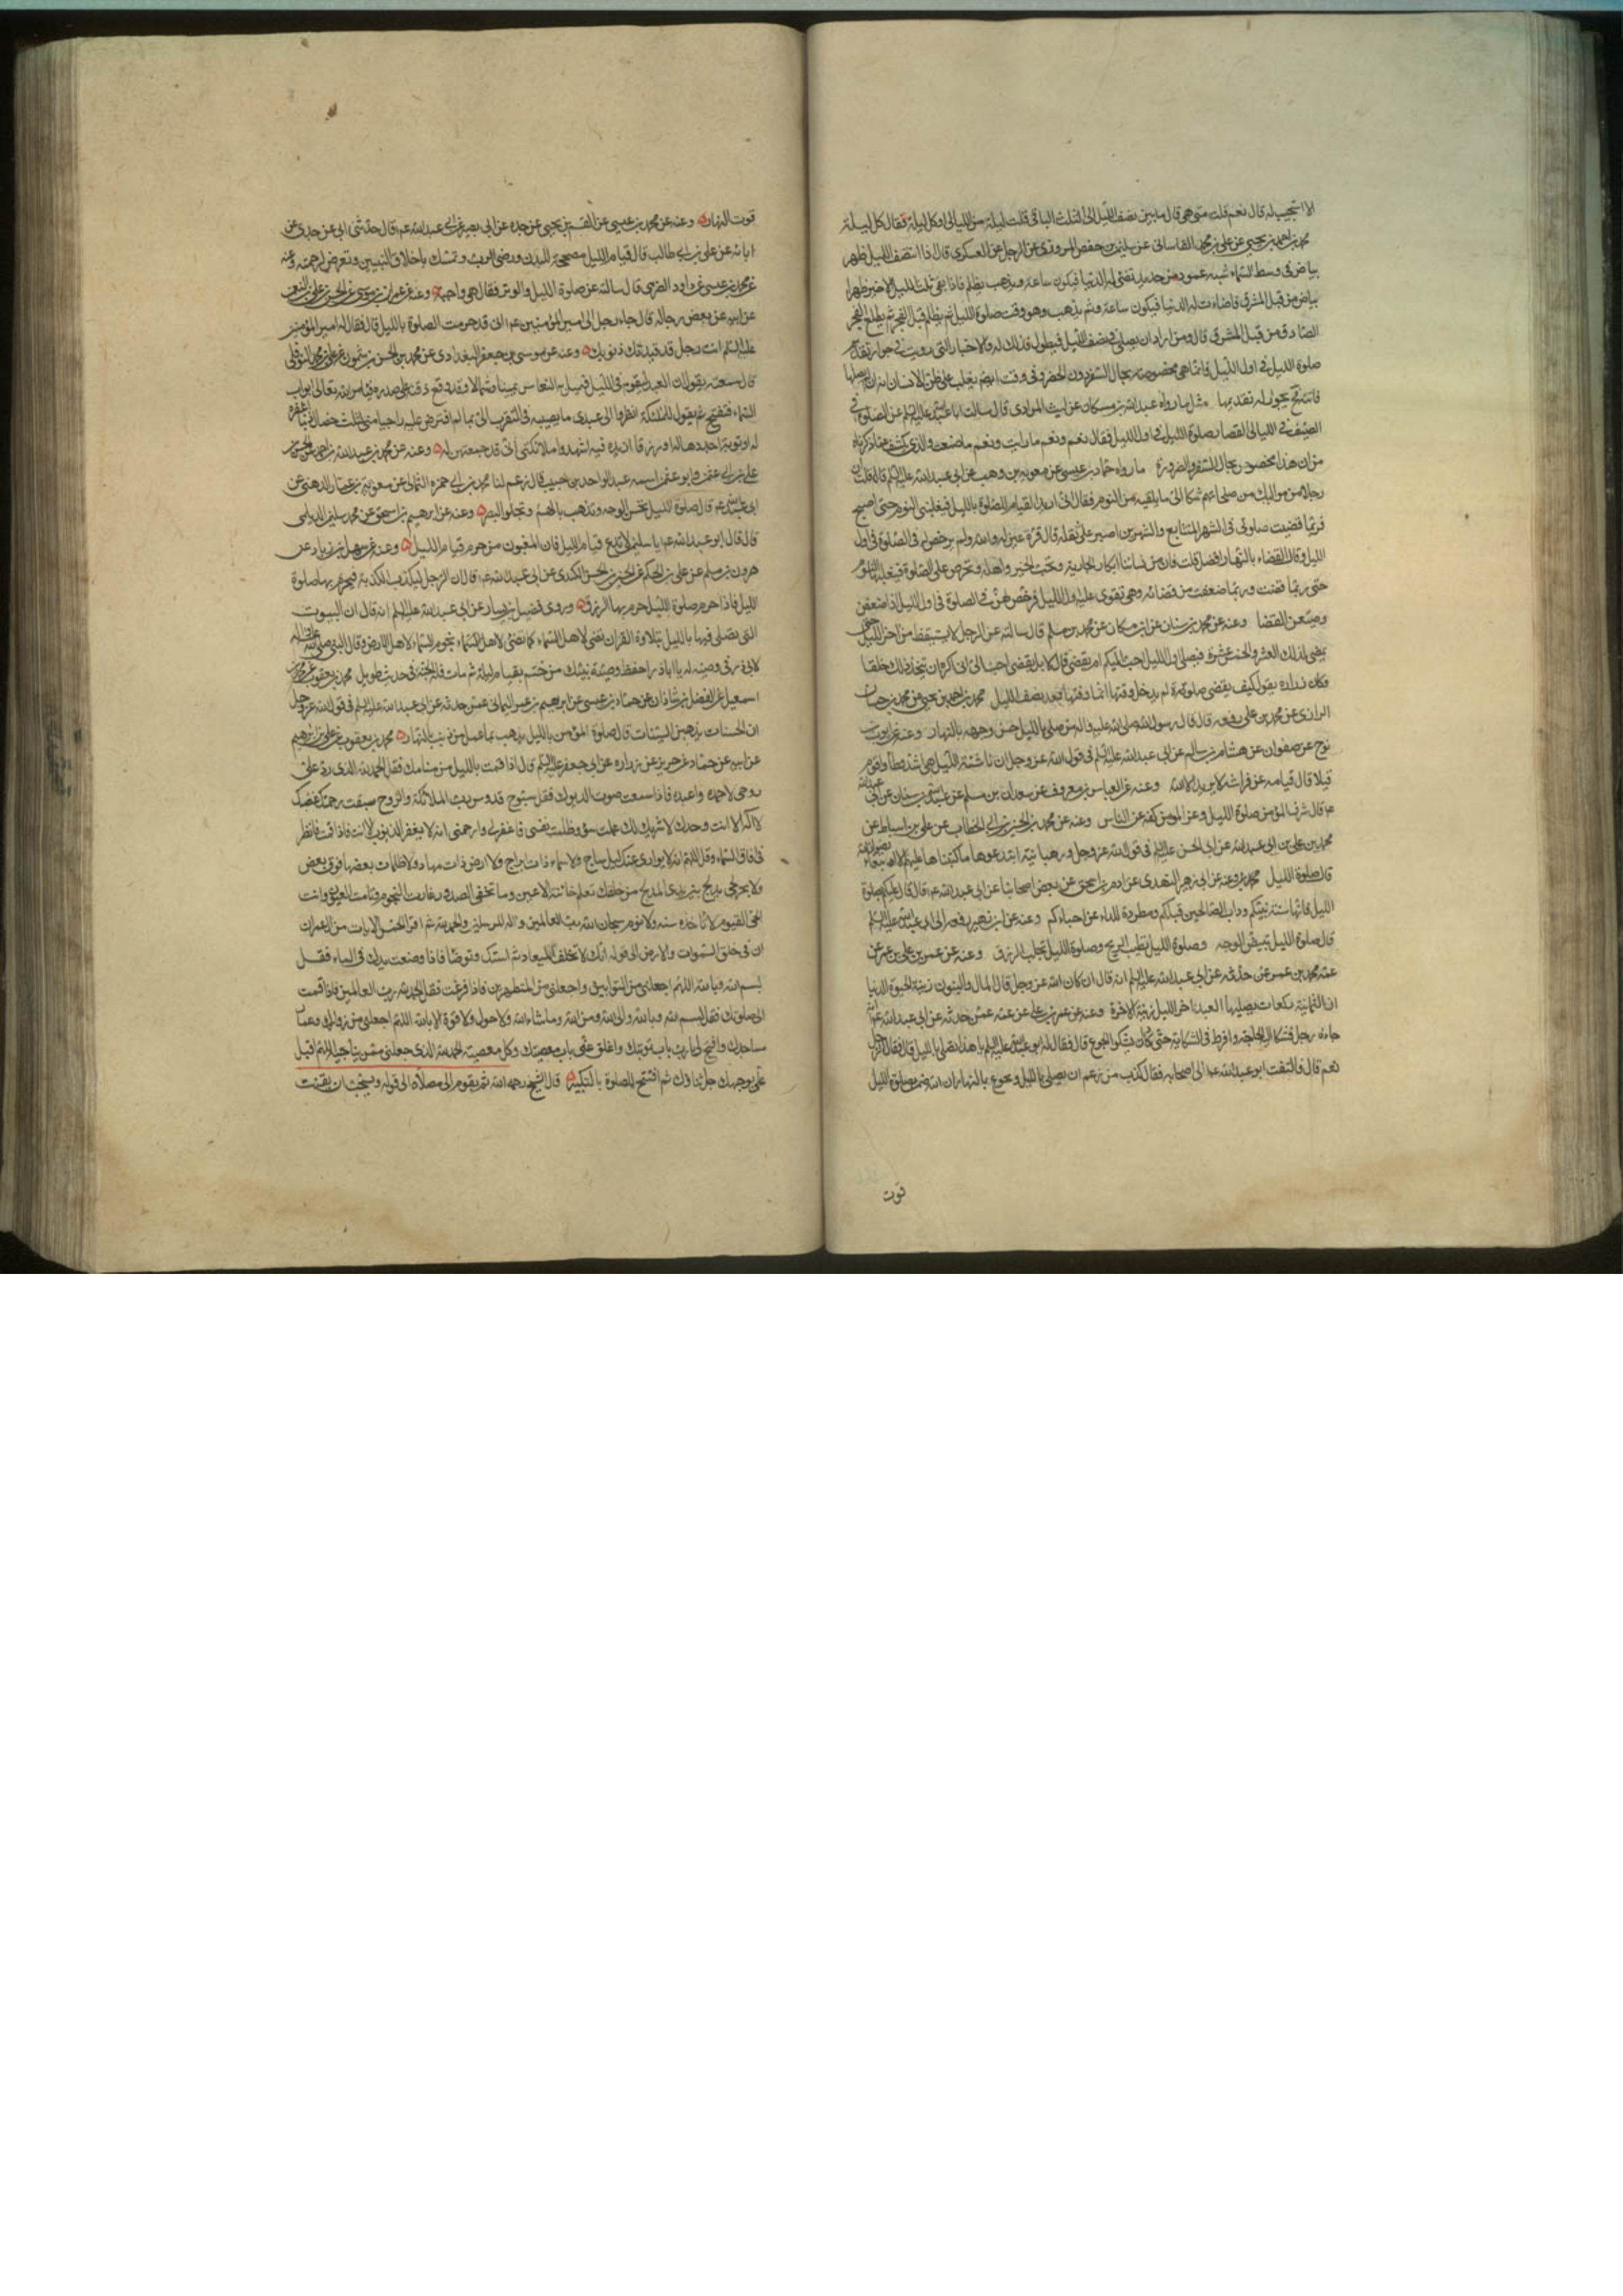 الا استجيب له قال نعم قلت متى هي قال ما بين نصف الليل الى الثلث الباقي قلت ليلة من الليالي او كل ليلة فقال كل ليلة
محمد بن احمد بن يحيى عن علي بن محمد القاساني عن سليمن بن حفص المروزي عن الرجل العسكري قال اذا انتصف الليل ظهر
بياض في وسط السماء شبه عمود من حديد تضئ له الدنيا فيكون ساعة ويذهب ويظلم فاذا بقي ثلث الليل الاخير ظهر
بياض من قبل المشرق فاضاءت له الدنيا فيكون ساعة ثم يذهب وهو وقت صلوة الليل ثم يظلم قبل الفجر ثم يطلع الفجر
الصادق من قبل المشرق قال ومن اراد ان يصلي في نصف الليل فيطول فذلك له فالاخبار التي رويت في جواز تقديم
صلوة الليل في اول الليل فانما هي مخصوصة بحال السفر دون الحضر وفي وقت
الصيف في الليالي القصار صلوة الليل في اول الليل فقال نعم ونعم ما رايت ونعم ما صنعت
من ان هذا مخصوص بحال السفر والضرورة ما رواه حماد بن عيسى عن معوية بن وهب عن ابي عبد الله عليه السلم قال قلت ان
رجلا من مواليك من صلحائهم شكا الي ما يلقى من النوم فقال اني اريد القيام للصلوة بالليل فيغلبني النوم حتى اصبح
فربما قضيت صلوتي في الشهر المتتابع والشهرين اصبر على ثقله قال قرة عين له والله ولم يرخص له في الصلوة في اول
الليل وقال القضاء بالنهار افضل قلت فان من نسائنا ابكار الجارية وتحب الخير واهله وتحرص على الصلوة فيغلبها النوم
حتى ربما قضت وربما ضعفت من قضائه وهي تقوى عليه اول الليل فرخص لهن في الصلوة في اول الليل اذا ضعفن
وضيعن القضا وعنه عن محمد بن سنان عن ابن مسكان عن محمد بن مسلم قال سالته عن الرجل لا يستيقظ من اخر الليل حتى
يمضي لذلك العشر والخمس عشرة فيصلي اول الليل احب اليك ام يقضي قال لا بل يقضي احب الي اني اكره ان يتخذ ذلك خلقا
وكان زراره يقول كيف يقضي صلوة لم يدخل وقتها انما وقتها بعد نصف الليل محمد بن احمد بن يحيى عن محمد بن حسان
الرازي عن محمد بن علي رفعه قال قال رسول الله صلى الله عليه واله من صلى بالليل حسن وجهه بالنهار وعنه عن ايوب بن
نوح عن صفوان عن هشام بن سالم عن ابي عبد الله عليه السلم في قول الله عز وجل ان ناشئة الليل هي اشد وطا واقوم
قيلا قال قيامه عن فراشه لا يريد الا الله وعنه عن العباس بن معروف عن سعدان بن مسلم عن عبد الله بن سنان عن ابي عبد الله
ع قال شرف المؤمن صلوة الليل وعز المؤمن كفه عن الناس وعنه عن محمد بن الحسين بن ابي الخطاب عن علي بن اسباط عن
محمد بن علي بن ابي عبد الله عن ابي الحسن عليه السلم في قول الله عز وجل ورهبانية ابتدعوها ما كتبناها عليهم الا ابتغاء رضوان الله
قال صلوة الليل
الليل فانها سنة نبيكم وداب الصالحين قبلكم ومطردة للداء عن اجسادكم
قال صلوة الليل تبيض الوجه وصلوة الليل تطيب الريح وصلوة الليل تجلب الرزق وعنه عن عمر بن علي بن عمر عن
عمه محمد بن عمر عن حدثه عن ابي عبد الله عليه السلم انه قال ان كان الله عز وجل قال المال والبنون زينة الحيوة الدنيا
ان الثمانية ركعات يصليها العبد اخر الليل زينة الاخرة وعنه عن عمر بن علي عن عمه عمن حدثه عن ابي عبد الله ع انه
جاءه رجل فشكا اليه الحاجة وافرط في الشكاية حتى كاد ان يشكو الجوع قال فقال له ابو عبد الله عليه السلم يا هذا تصلي بالليل قال فقال الرجل
نعم قال فالتفت ابو عبد الله ع الى اصحابه فقال كذب من زعم انه يصلي بالليل ويجوع بالنهار ان الله ضمن بصلوة الليل
قوت
قوت النهار وعنه عن محمد بن عيسى عن القسم بن يحيى عن جده عن ابي بصير عن ابي عبد الله ع قال حدثني ابي عن جدي عن
ابائه عن علي بن ابي طالب قال قيام الليل مصححة البدن ورضى الرب وتمسك باخلاق النبيين وتعرض لرحمته وعنه
قال سالته عن صلوة الليل والوتر فقال هي واجبة
عن ابيه عن بعض رجاله قال جاء رجل الى امير المؤمنين ع اني قد حرمت الصلوة بالليل قال فقال له امير المؤمنين
عليه السلم انت رجل قد قيدتك ذنوبك وعنه عن موسى بن جعفر البغدادي عن محمد بن الحسن بن شمون عن علي بن محمد النوفلي
قال سمعته يقول ان العبد ليقوم في الليل فيميل به النعاس يمينا وشمالا وقد وقع ذقنه على صدره فيامر الله تعالى ابواب
السماء فتفتح ثم يقول للملئكة انظروا الى عبدي ما يصيبه في التقرب الي بما لم افترض عليه راجيا مني لثلث خصال ذنبا اغفره
له او توبة اجددها له او رزقا ازيده فيه اشهدوا ملائكتي اني قد جمعتهن له وعنه عن محمد بن عبد الله بن احمد عن الحسن بن
علي بن ابي عثمن وابو عثمن اسمه عبد الواحد بن حبيب قال زعم لنا محمد بن ابي حمزه الثمالي عن معوية بن عمار الدهني عن
ابي عبد الله ع قال صلوة الليل تحسن الوجه وتذهب بالهم وتجلو البصر وعنه عن ابرهيم بن اسحق عن محمد بن سليمن الديلمي
قال قال ابو عبد الله ع يا سليمن لا تدع قيام الليل فان المغبون من حرم قيام الليل وعنه عن سهل بن زياد عن
هرون بن مسلم عن علي بن الحكم عن الحسين بن الحسن الكندي عن ابي عبد الله ع قال ان الرجل ليكذب الكذبة فيحرم بها صلوة
الليل فاذا حرم صلوة الليل حرم بها الرزق وروى فضيل بن يسار عن ابي عبد الله عليه السلم انه قال ان البيوت
التي يصلى فيها بالليل بتلاوة القران تضئ لاهل السماء كما تضئ لاهل السماء نجوم السماء لاهل الارض وقال النبي صلى الله عليه واله
لابي ذر في وصيته له يا اباذر احفظ وصية نبيك من ختم بقيام ليلة ثم مات فله الجنة في حديث طويل محمد بن يعقوب عن محمد بن
اسمعيل عن الفضل بن شاذان عن حماد بن عيسى عن ابرهيم بن عمر اليماني عمن حدثه عن ابي عبد الله عليه السلم في قول الله عز وجل
ان الحسنات يذهبن السيئات قال صلوة المؤمن بالليل يذهب بما عمل من ذنب بالنهار محمد بن يعقوب عن علي بن ابرهيم
عن ابيه عن حماد عن حريز عن زراره عن ابي جعفر عليه السلم قال اذا قمت بالليل من منامك فقل الحمد لله الذي رد علي
روحي لاحمده واعبده فاذا سمعت صوت الديوك فقل سبوح قدوس رب الملائكة والروح سبقت رحمتك غضبك
لا اله الا انت وحدك لا شريك لك عملت سوء وظلمت نفسي فاغفر لي وارحمني انه لا يغفر الذنوب الا انت فاذا قمت فانظر
في افاق السماء وقل اللهم انه لا يواري عنك ليل ساج ولا سماء ذات ابراج ولا ارض ذات مهاد ولا ظلمات بعضها فوق بعض
ولا بحر لجي يدلج بين يدي المدلج من خلقك تعلم خائنة الاعين وما تخفي الصدور غارت النجوم ونامت العيون وانت
الحي القيوم لا تاخذه سنة ولا نوم سبحان الله رب العالمين واله المرسلين والحمد لله ثم اقرا الخمس الايات من ال عمران
ان في خلق السموات والارض الى قوله انك لا تخلف الميعاد ثم استك وتوضا فاذا وضعت يدك في الماء فقل
بسم الله وبالله اللهم اجعلني من التوابين واجعلني من المتطهرين فاذا فرغت فقل الحمد لله رب العالمين فاذا قمت
الى صلوتك فقل بسم الله وبالله والى الله ومن الله وما شاء الله ولا حول ولا قوة الا بالله اللهم اجعلني من زوارك وعمار
مساجدك وافتح لي يا رب باب توبتك واغلق عني باب معصيتك وكل معصية الحمد لله الذي جعلني ممن يناجيه اللهم اقبل
علي بوجهك جل ثناؤك ثم افتتح الصلوة بالتكبير قال الشيخ رحمه الله ثم يقوم الى مصلاه الى قوله ويستحب ان يقنت